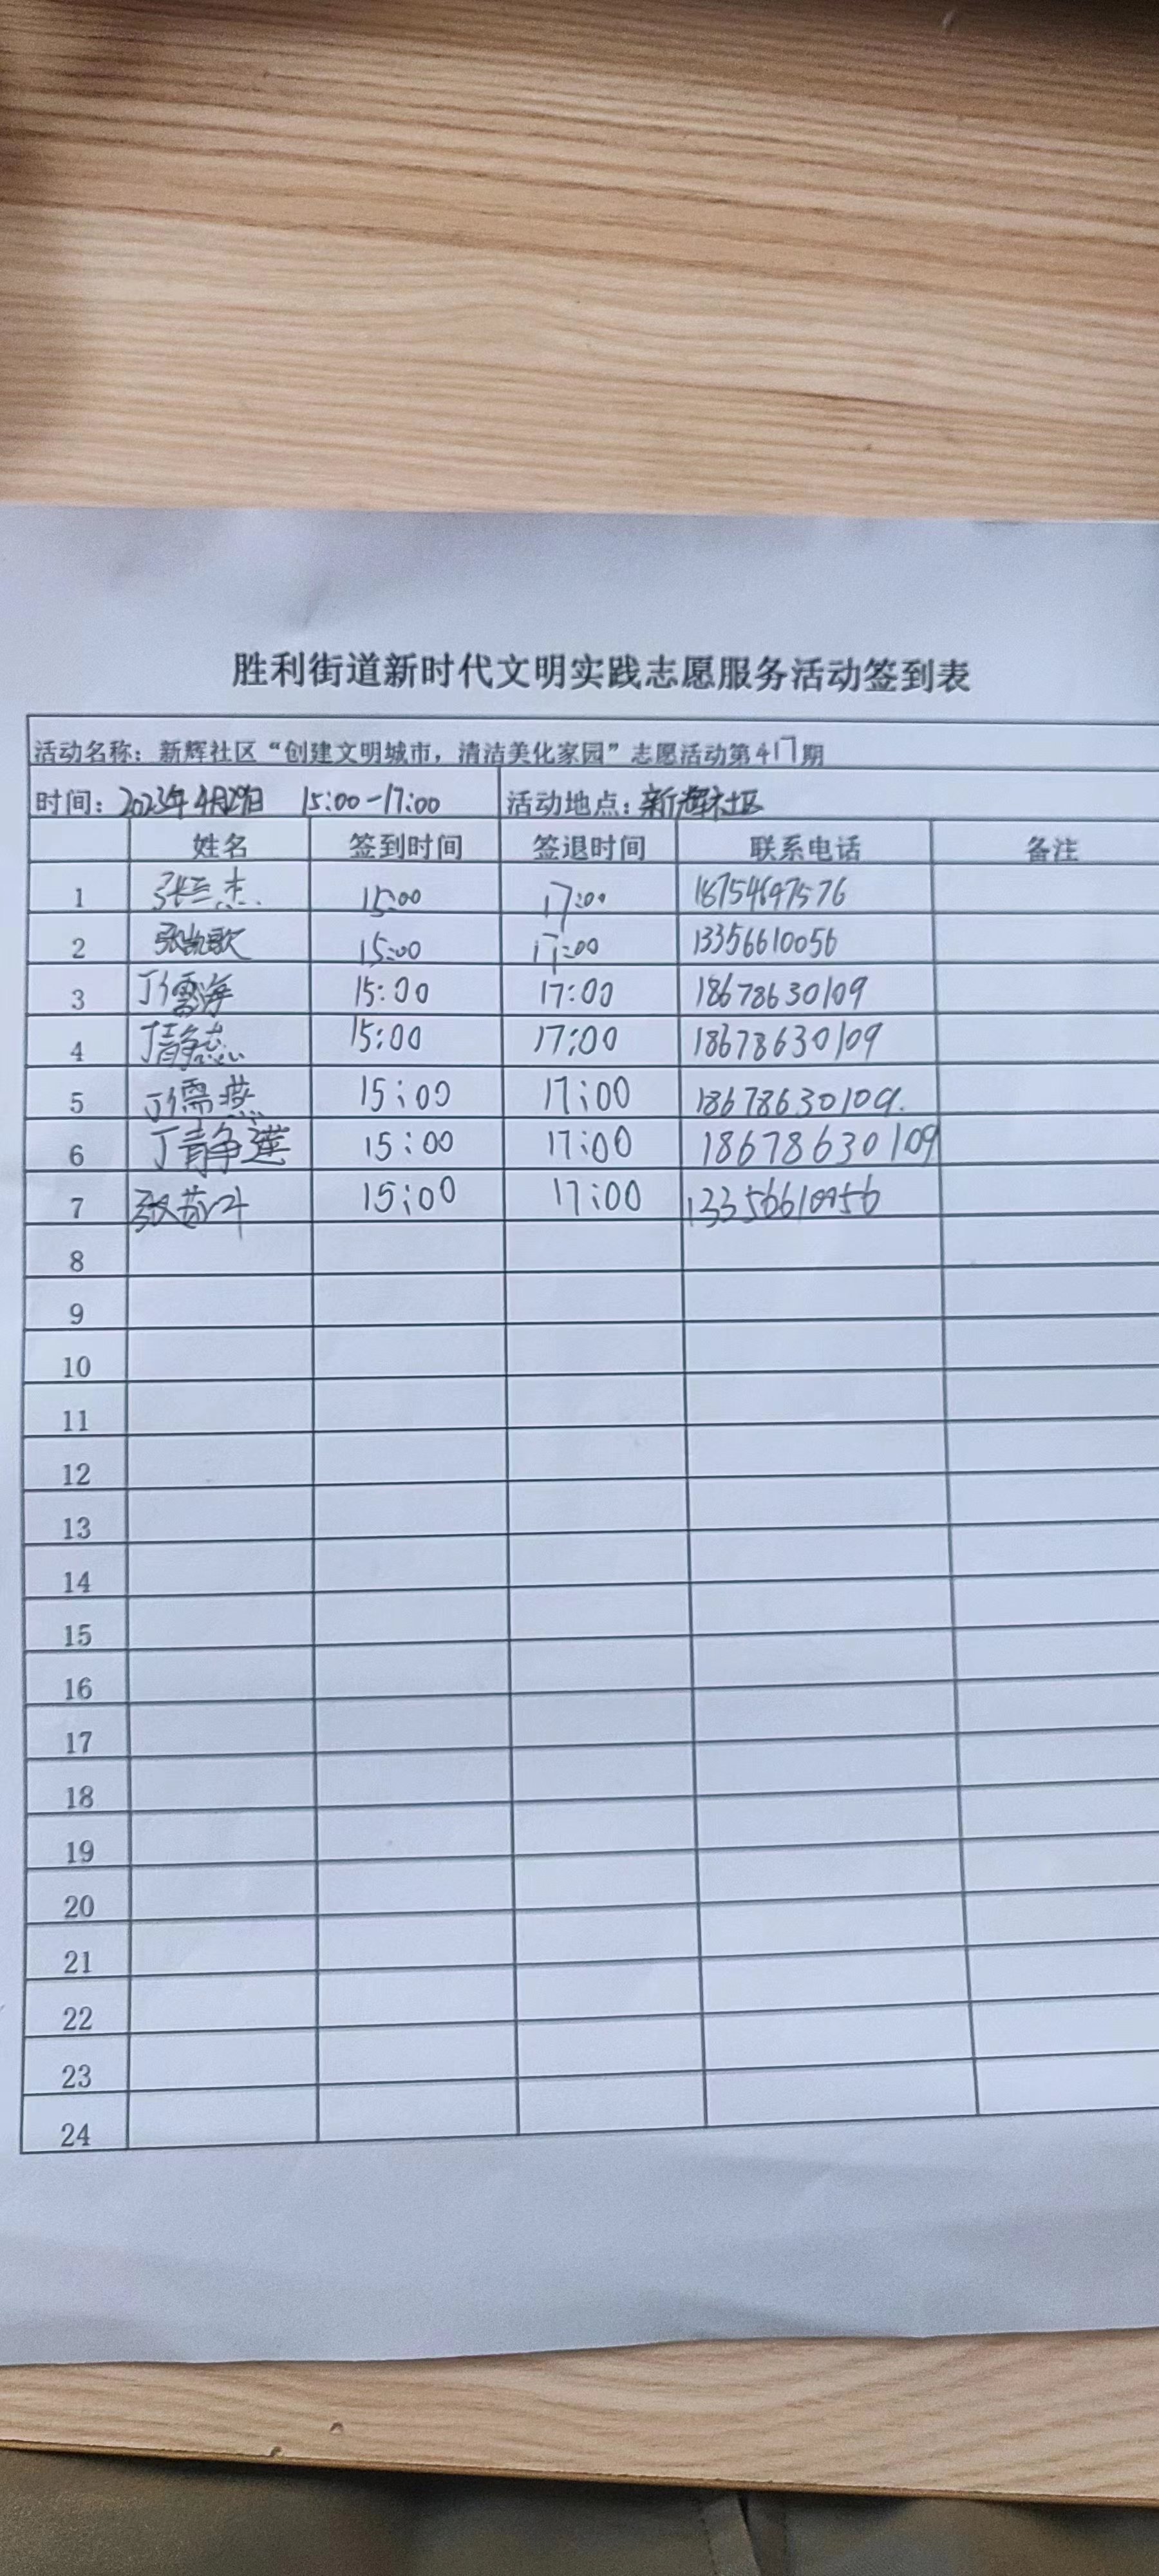 胜利街道新时代文明实践志愿服务活动签到表
活动名称：新辉社区“创建文明城市，清洁美化家园”志愿活动第417期
时间：2023年4月29日 15:00-17:00 活动地点：新辉社区
姓名 签到时间 签退时间 联系电话 备注
1 张三杰 15:00 17:00 18754697576
2 张凯歌 15:00 17:00 13356610056
3 丁儒海 15:00 17:00 18678630109
4 丁静 15:00 17:00 18678630109
5 丁儒燕 15:00 17:00 18678630109.
6 丁静莲 15:00 17:00 18678630109
7 15:00 17:00 13356610056
8
9
10
11
12
13
14
15
16
17
18
19
20
21
22
23
24